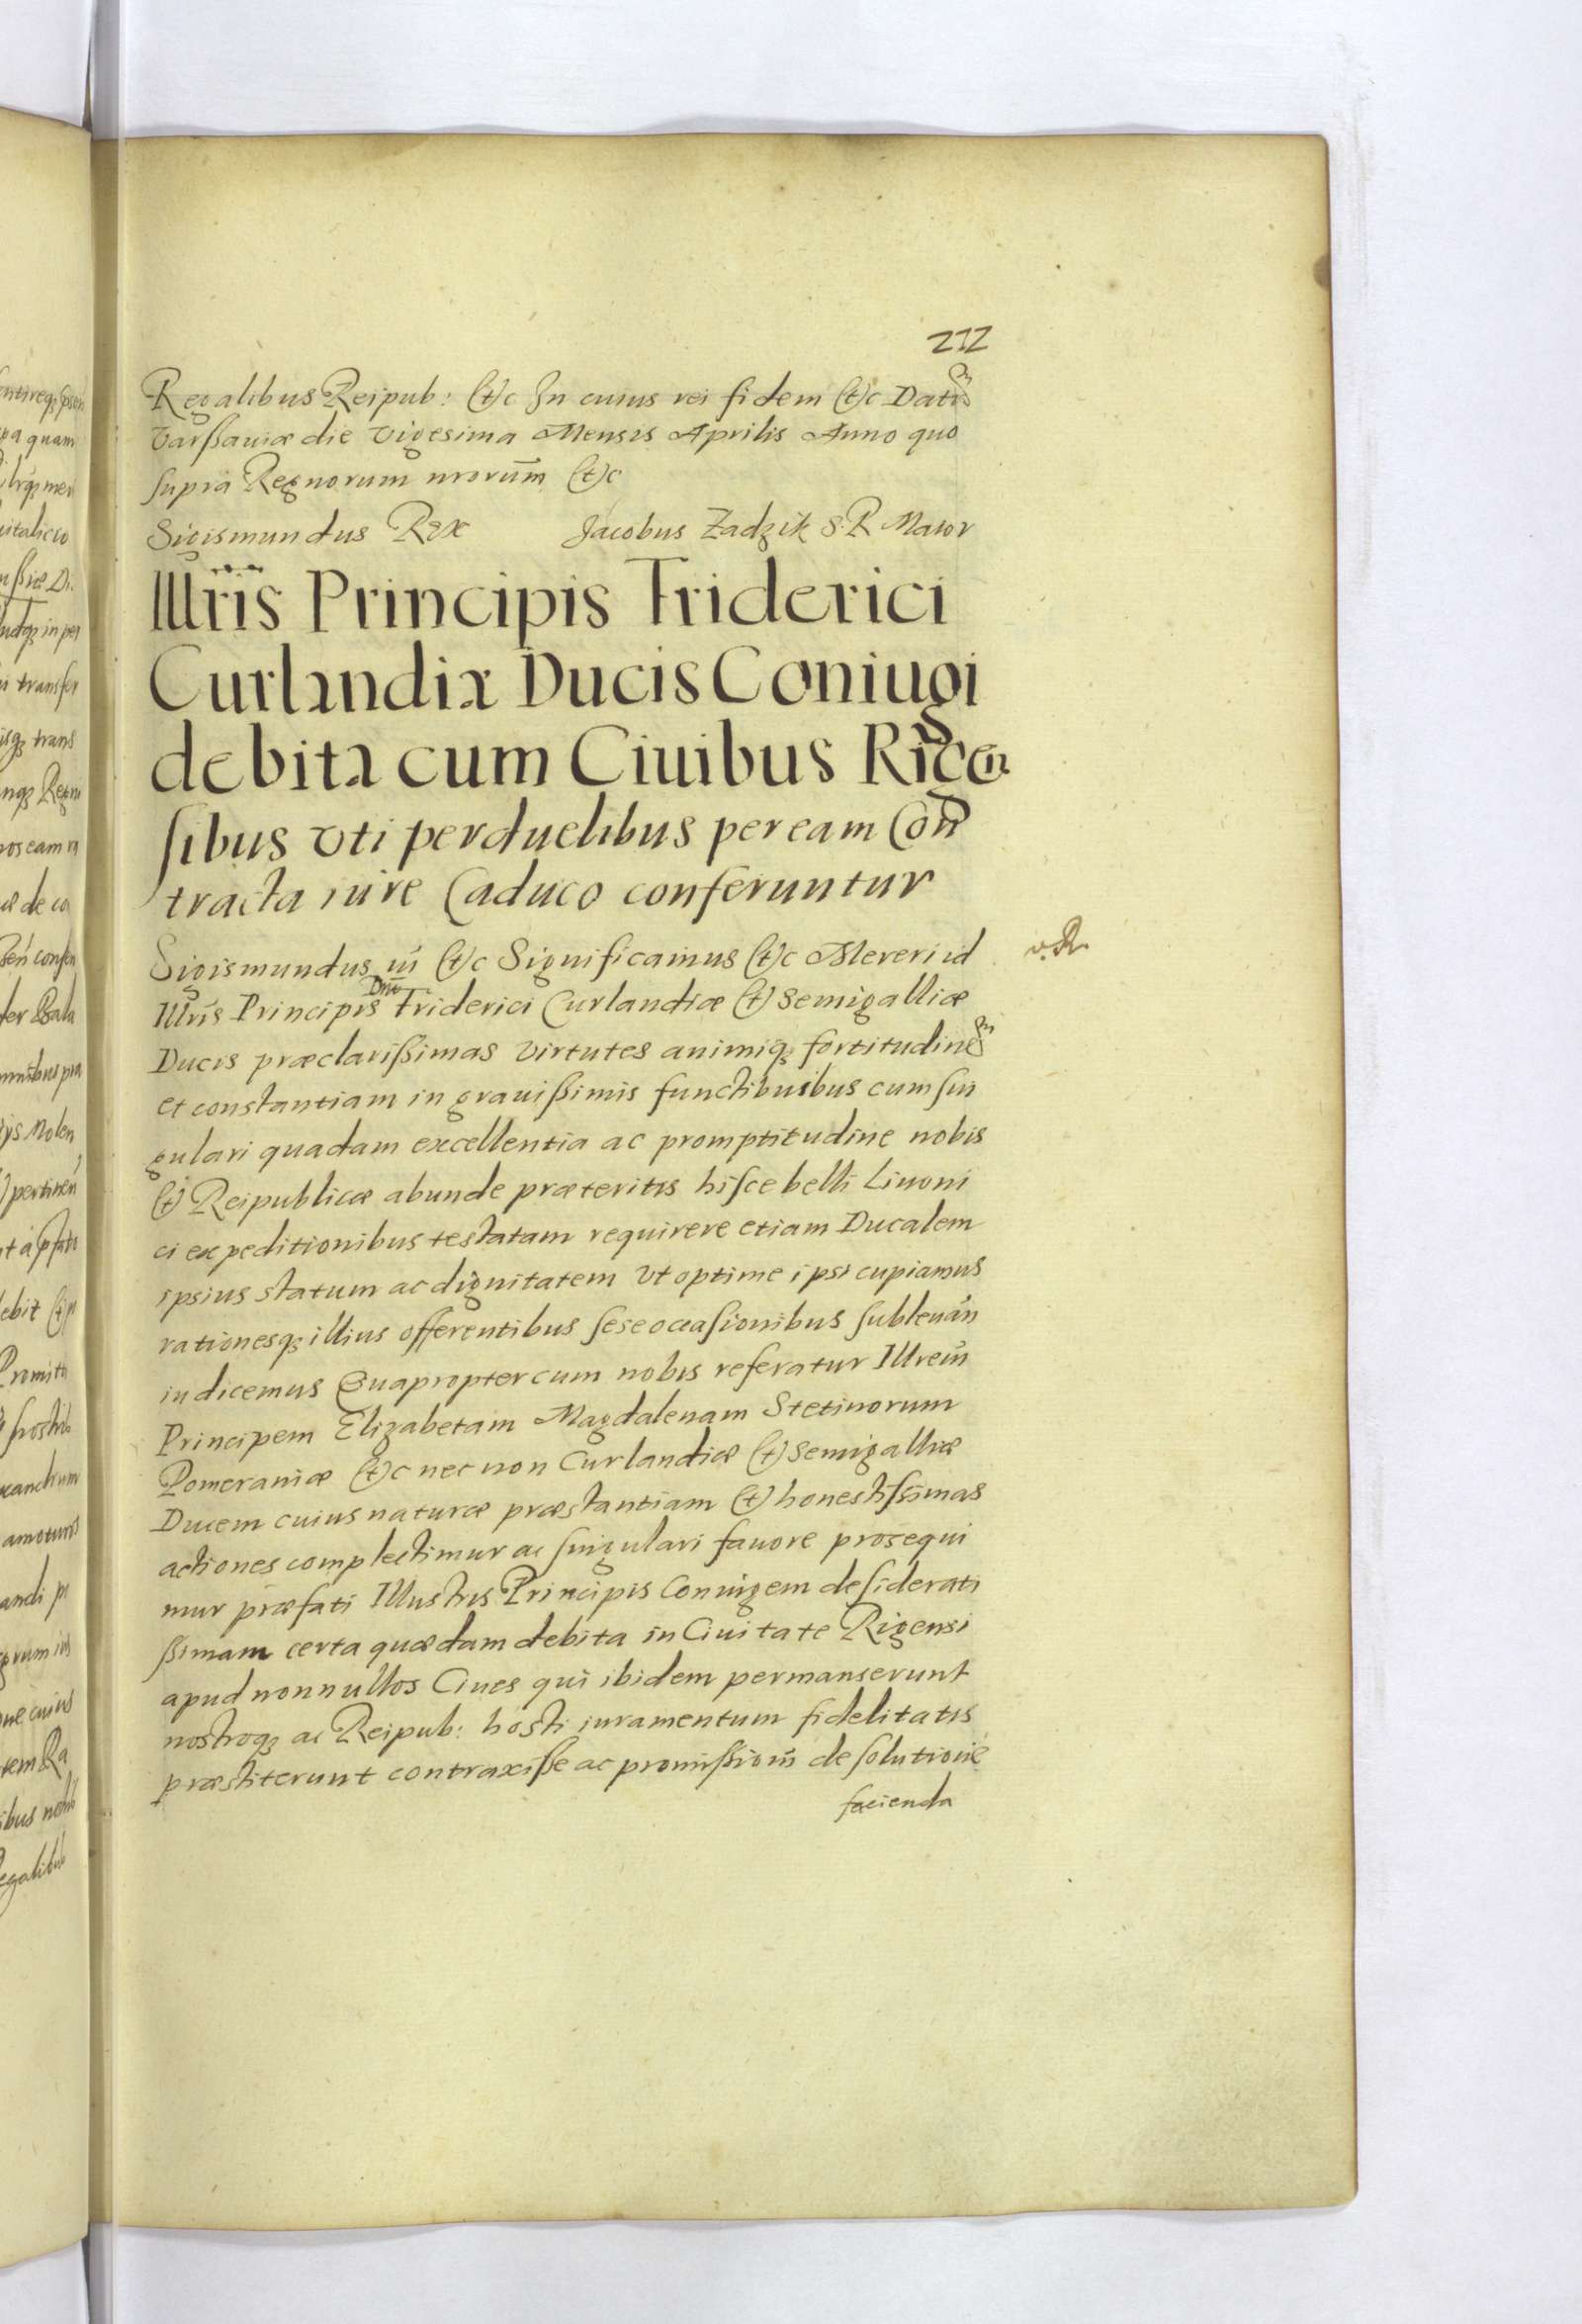 212
Regalibus Reipub: &c In cuius rei fidem &c Datũ
Varßauiæ die Vigesima Mensis Aprilis Anno quo
supra Regnorum nrorum̃ &c
Sigismundus Rex Jacobus Zadzik S. R Maior
Illris̃ Principis Friderici
Curlandiæ Ducis Coniugi
debita cum Ciuibus Rigen
sibus Vti perduelibus per eam Con
tracta iure Caduco conferuntur
Sigismundus iii &c Significamus &c Mereri id
v. R.
Illris̃ Principis Dni Friderici Curlandiæ & Semigalliæ
Ducis præclarißimas Virtutes animiq; fortitudinẽ
et constantiam in grauißimis functibuibus cum sin
gulari quadam excellentia ac promptitudine nobis
& Reipublicæ abunde præteritis hisce belli Liuoni
ci expeditionibus testatam requirere etiam Ducalem
ipsius statum ac dignitatem Vt optime ipsi cupiamus
rationesq; illius offerentibus sese occasionibus subleuañ
iudicemus Quapropter cum nobis referatur Illrem̃
Principem Elizabetam Magdalenam Stetinorum
Pomeraniæ &c nec non Curlandiæ & Semigalliæ
Ducem cuius naturæ præstantiam & honestissimas
actiones complectimur ac singulari fauore prosequi
mur præfati Illustris Principis Coniugem desiderati
ßimam certa quædam debita in Ciuitate Rigensi
apud nonnullos Ciues qui ibidem permanserunt
nostroq; ac Reipub: hosti iuramentum fidelitatis
præstiterunt contraxiße ac promißiom̃ de solutione
facienda